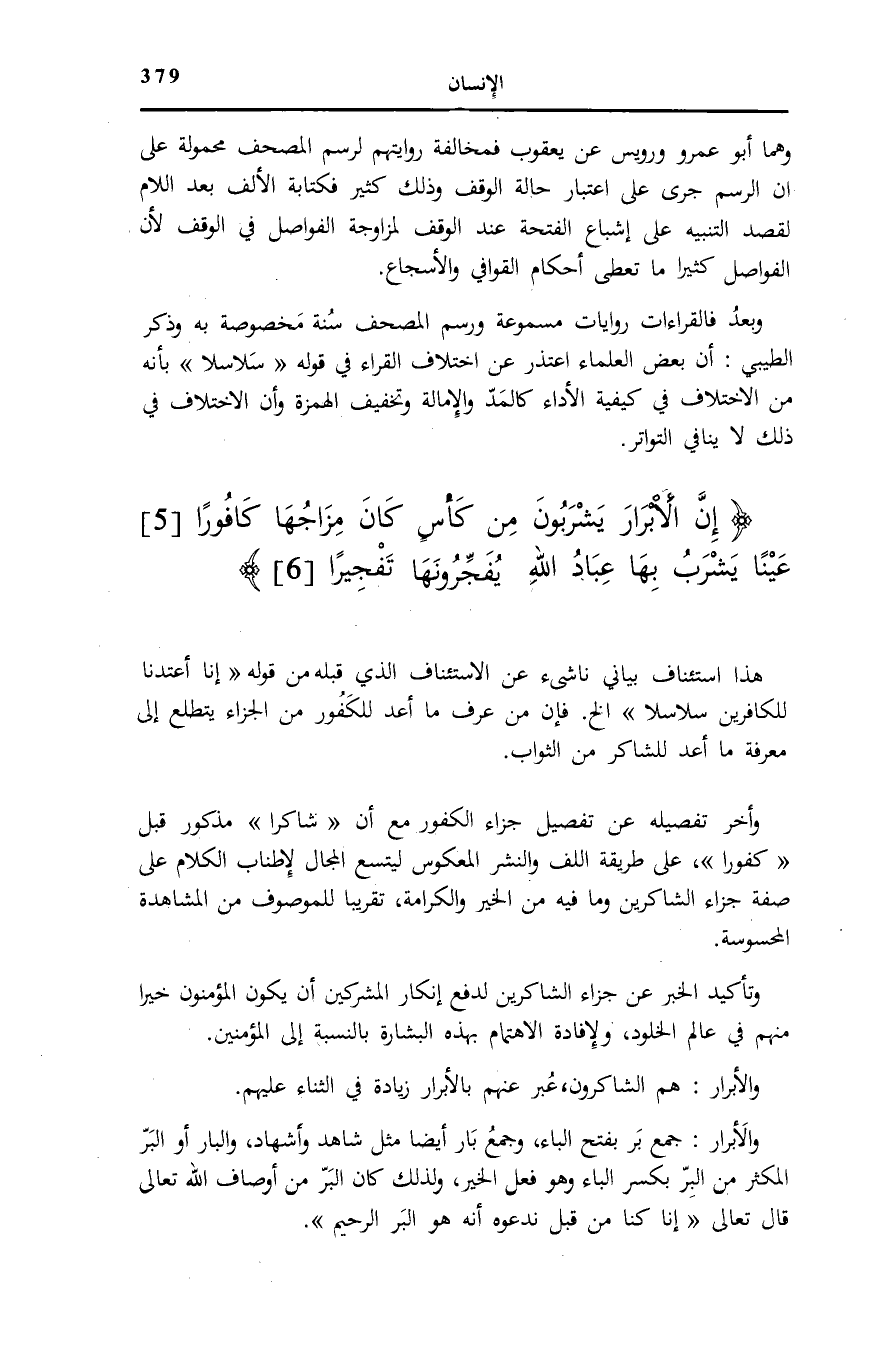 379
الإنسان
وهما أبو عمرو ورويس عن يعقوب فمخالفة روايتهم لرسم المصحف محمولة على
ان الرسم جرى على اعتبار حالة الوقف وذلك كثير فكتابة الألف بعد اللام
لقصد التنبيه على إشباع الفتحة عند الوقف لمزاوجة الفواصل في الوقف لأن
الفواصل كثيرا ما تعطى أحكام القوافي والأسجاع.
وبعدُ فالقراءات روايات مسموعة ورسم المصحف سُنة مَخصوصة به وذكر
الطيبي : أن بعض العلماء اعتذر عن اختلاف القراء في قوله « سَلاسلا » بأنه
من الاختلاف في كيفية الأداء كالمَدّ والإمالة وتخفيف الهمزة وأن الاختلاف في
ذلك لا ينافي التواتر.
﴿ إِنَّ الَأَبْرَارَ يَشْرَبُونَ مِن كَأْسٍ كَانَ مِزَاجُهَا كَافُورًا [5]
عَيْنًا يَشْرَبُ بِهَا عِبَادُ اللهِ يُفَجِّرُونَهَا تَفْجِيرًا [6] ﴾
هذا استئناف بياني ناشىء عن الاستئناف الذي قبله من قوله « إنا أعتدنا
للكافرين سلاسلا » الخ. فإن من عرف ما أعد للكَفُور من الجزاء يتطلع إلى
معرفة ما أعد للشاكر من الثواب.
وأخر تفصيله عن تفصيل جزاء الكفور مع أن « شاكرا » مذكور قبل
« كفورا »، على طريقة اللف والنشر المعكوس ليتسع المجال لإطناب الكلام على
صفة جزاء الشاكرين وما فيه من الخير والكرامة، تقريبا للموصوف من المشاهدة
المحسوسة.
وتأكيد الخبر عن جزاء الشاكرين لدفع إنكار المشركين أن يكون المؤمنون خيرا
منهم في عالم الخلود، ولإفادة الاهتمام بهذه البشارة بالنسبة إلى المؤمنين.
والأبرار : هم الشاكرون، عُبر عنهم بالأبرار زيادة في الثناء عليهم.
والَأبرار : جمع بَر بفتح الباء، وجمعُ بَار أيضا مثل شاهد وأشهاد، والبار أو البَرّ
المكثر من البِرّ بكسر الباء وهو فعل الخير، ولذلك كان البَرّ من أوصاف الله تعالى
قال تعالى « إنا كنا من قبل ندعوه أنه هو البَر الرحيم ».